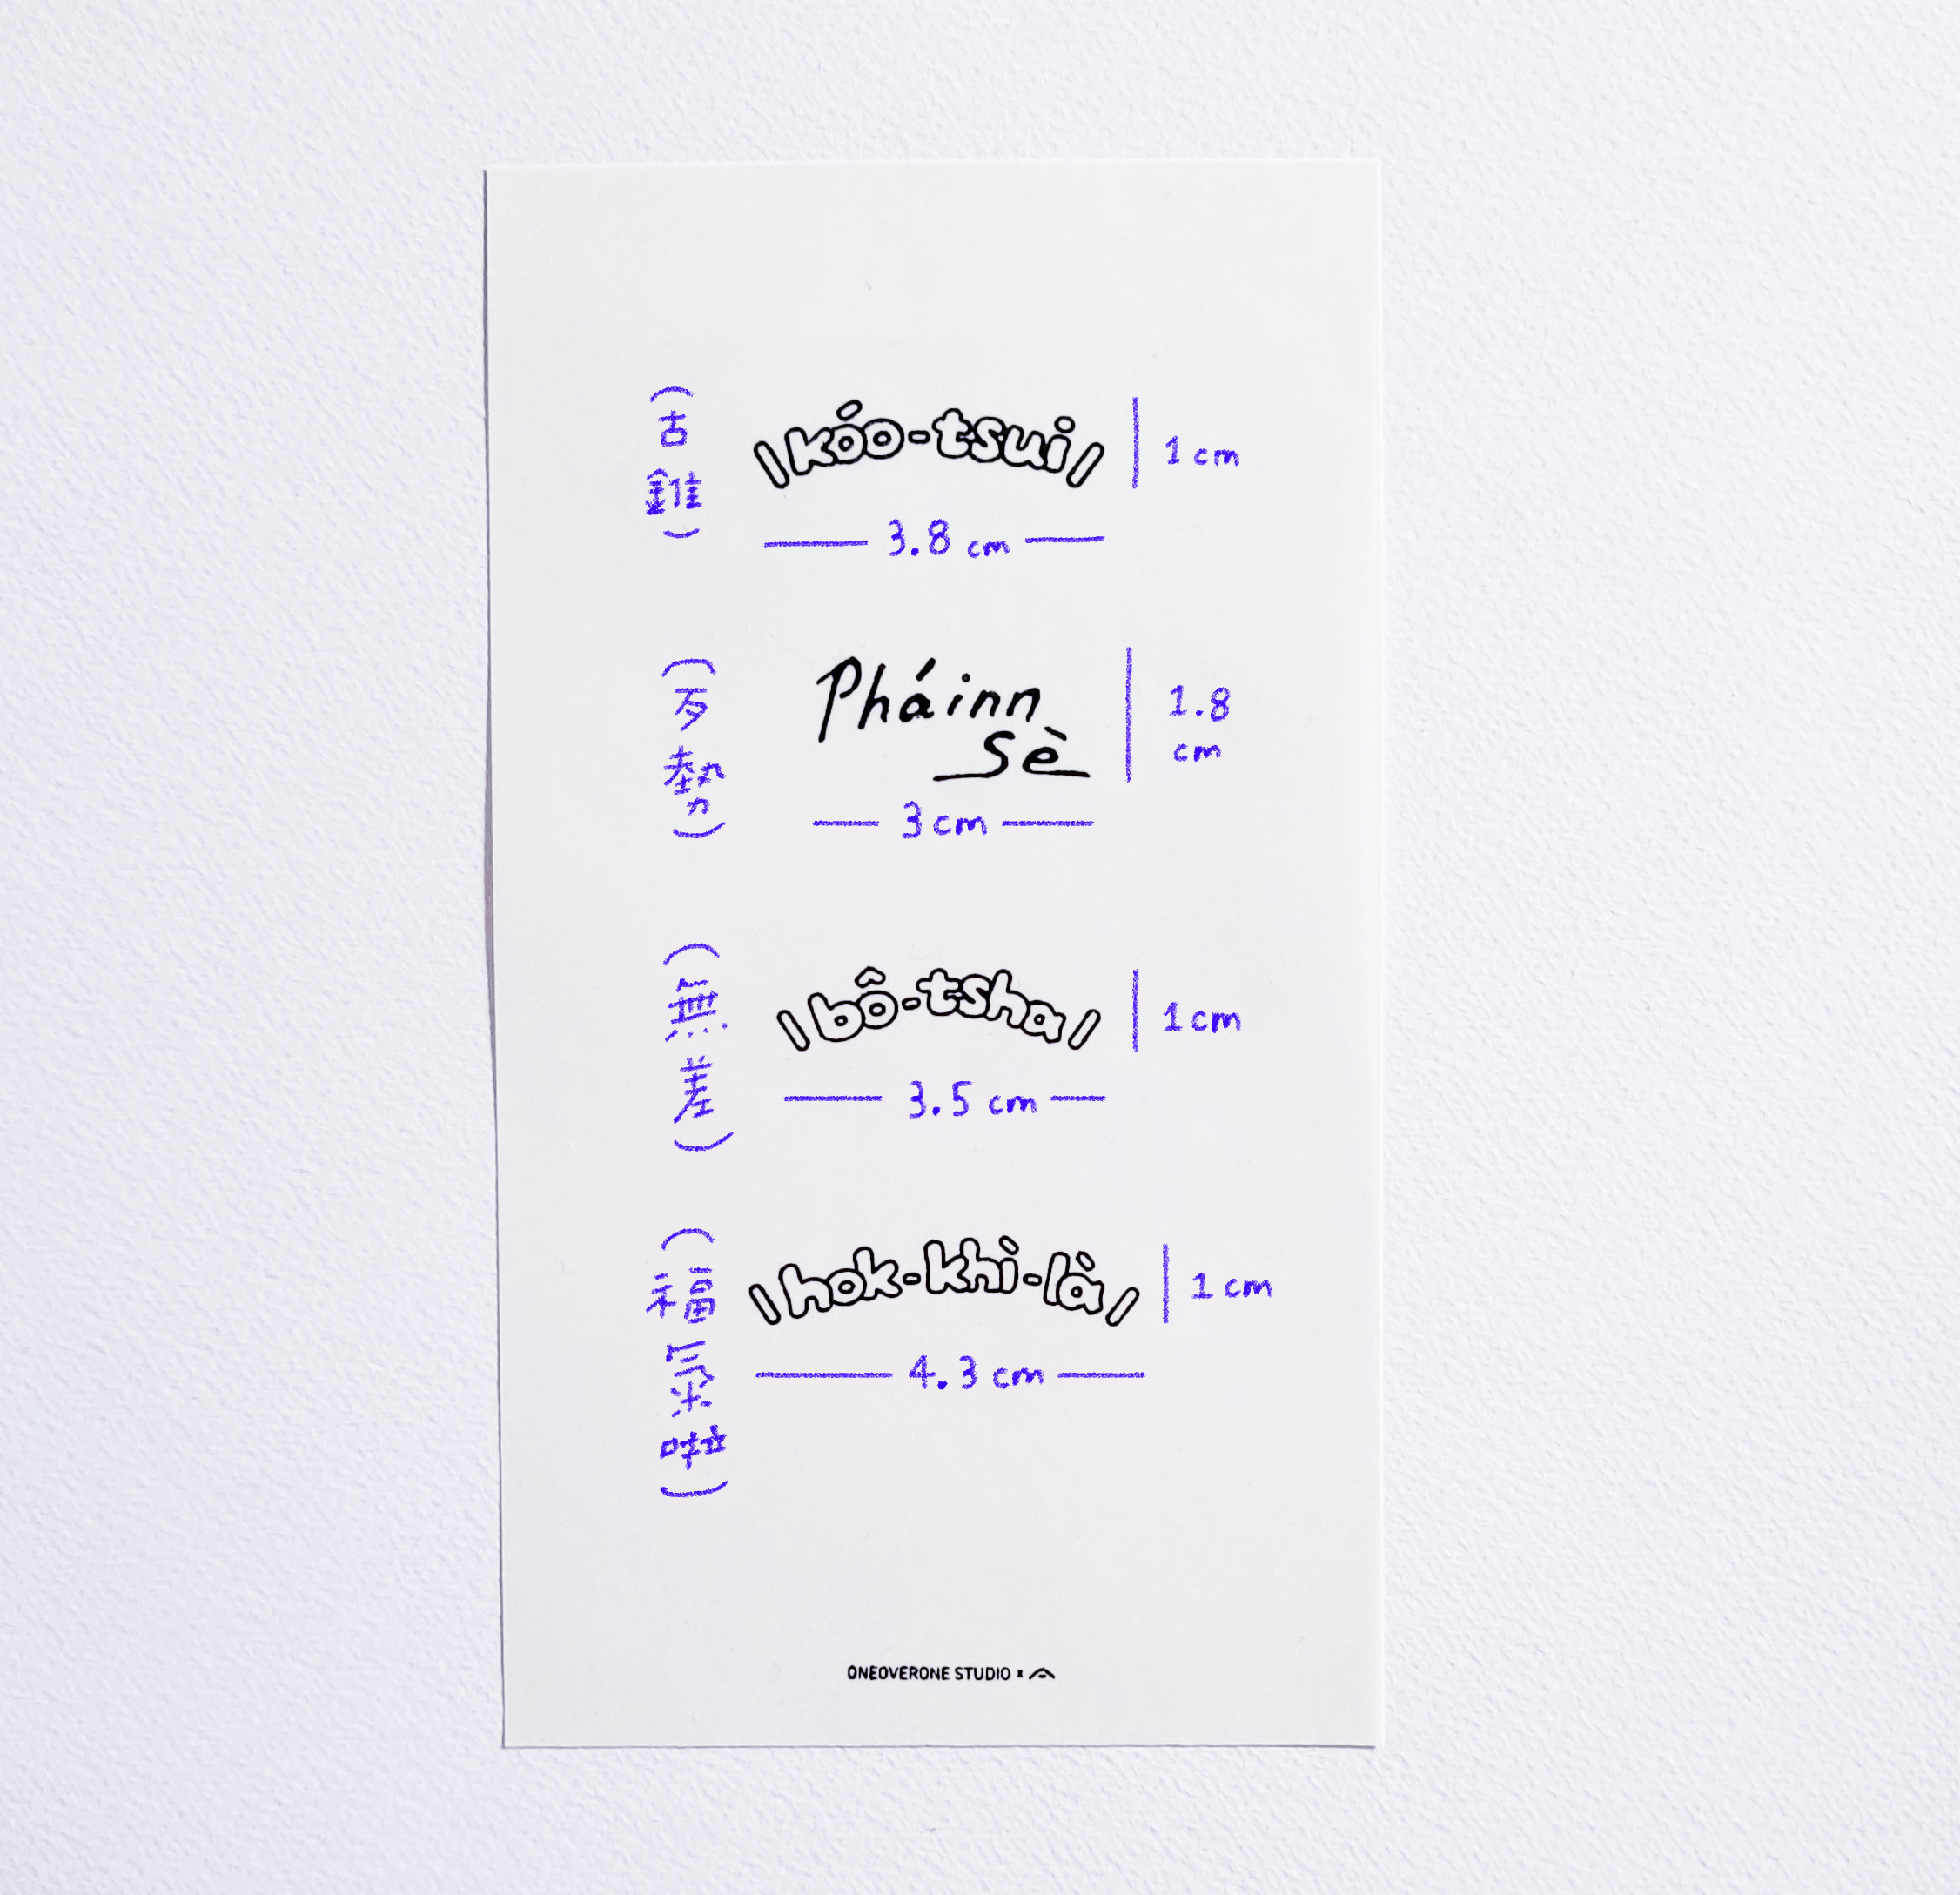 (古錐)
\kóo-tsui/
1 cm
3.8 cm
(歹勢)
Pháinn
sè
1.8
cm
3 cm
(無差)
\bô-tsha/
1 cm
3.5 cm
(福氣啦)
\hok-khì-là/
1 cm
4.3 cm
ONEOVERONE STUDIO x